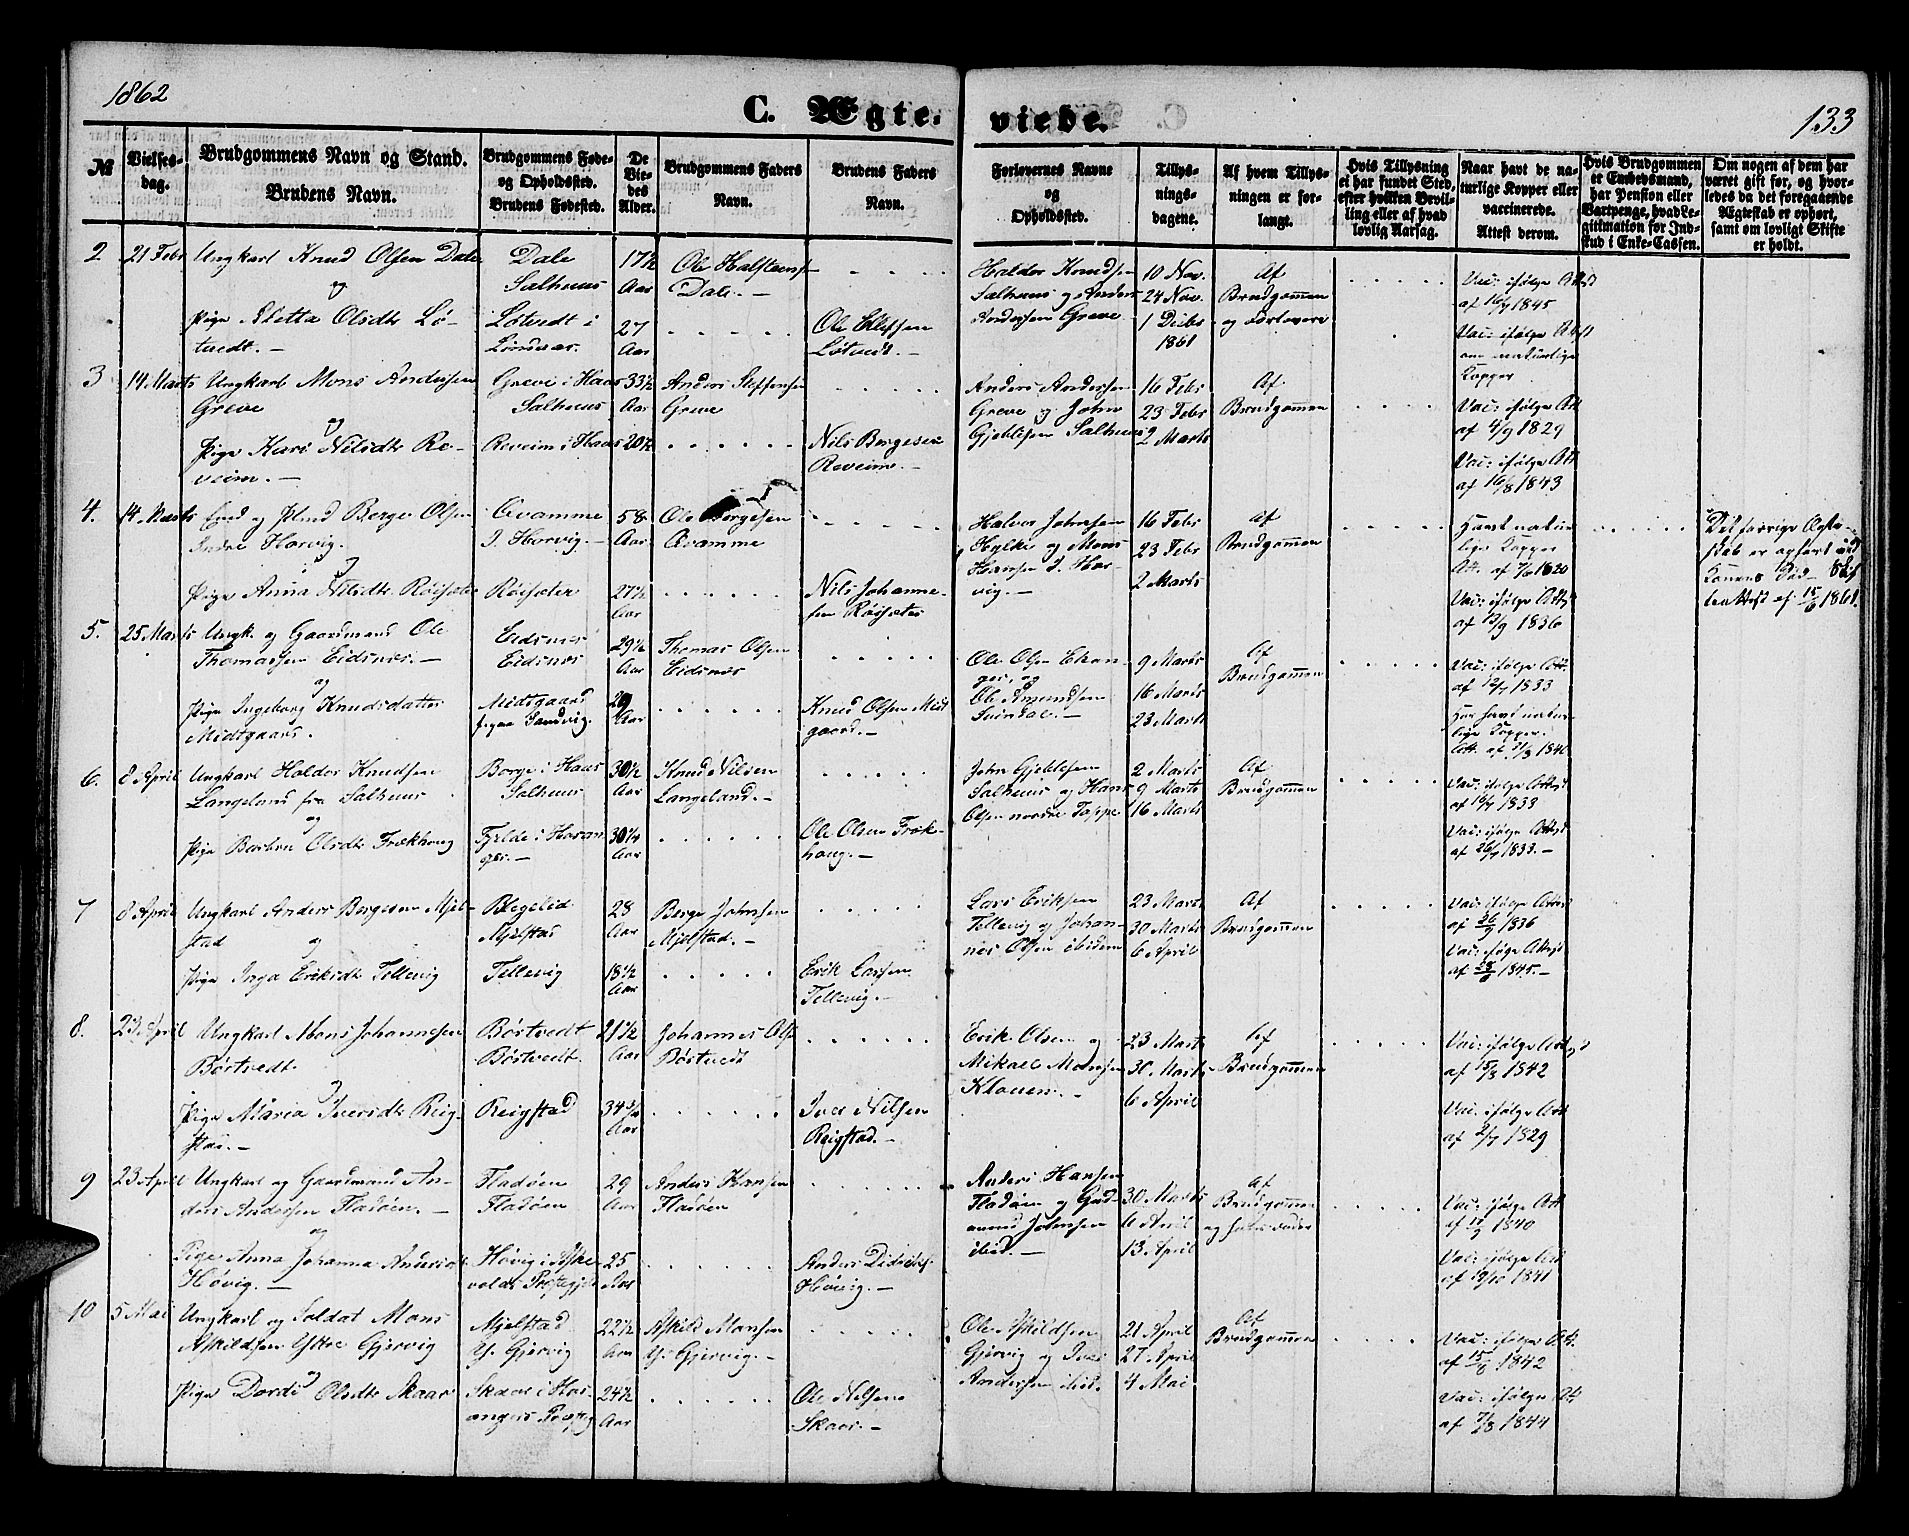 1862
C. Ægte-
viede.
133
№
Vielses-
dag.
Brudgommens Navn og Stand.
Brudens Navn.
Brudgommens Føde-
og Opholdssted.
Brudens Fødested.
De
Vie-
des
Alder.
Brudgommens Faders
Navn.
Brudens Faders
Navn.
Forlovernes Navne
og
Opholdssted.
Tillys-
nings-
dagene.
Af hvem Tillys-
ningen er for-
langt.
Hvis Tillysning
ei har fundet Sted,
efter hvilken Bevil-
ling eller af hvad
lovlig Aarsag.
Naar havt de na-
turlige Kopper eller
vaccinerede.
Attest derom.
Hvis Brudgommen
er Embedsmand,
har Pension eller
Vartpenge, hvad Le-
gitimation for Ind-
skud i Enke-Cassen.
Om nogen af dem har
været gift før, og hvor-
ledes da det foregaaende
Ægteskab er ophørt,
samt om lovligt Skifte
er holdt.
2
21 Febr
Ungkarl Knud Olsen Dale
og
Pige Sletta Olsdtr Lø-
tvedt. -
Dale
Salhuus
Løtvedt i
17½
Aar
27
Aar
Ole Halstensen
Dale. -
Ole Ellefsen
Løtvedt. -
Haldor Knudsen
Salhuus og Anders
Andersen Greve
10 Nov.
24 Nov.
1 Decbr
1861
Af
Brudgommen
og Forlovere
Vac: ifølge Att
af 16/9 1845
Vac: ifølge Attst
om naturlige
Kopper
3
14 Marts
Ungkarl Mons Andersen
Greve
og
Pige Kari Nilsdtr Re-
veim. -
Greve i Haus
Salhuus
Reveim i Haus
33½
Aar
20½
Anders Steffensen
Greve
Nils Borgesen
Reveim. -
Anders Andersen
Greve og John
Gjeblesen Salhuus
16 Febr
23 Febr
2 Marts
Af
Brudgommen
Vac: ifølge Att
af 4/9 1829
Vac: ifølge Att
af 16/8 1843
4.
14 Marts
Berge Olsen
Indre Horvig.
og
Pige Anna Nilsdtr Røisæter
Qvamme
I. Horvig. -
Røisæter
58
Aar
27½
Aar
Ole Borgesen
Qvamme
Nils Johanne-
sen Røisæter
Halvor Johnsen
Hylke og Mons
Hansen I. Hor-
vig. -
16 Febr
23 Febr
2 Marts
Af
Brudgommen
Havt natur-
lige Kopper
Att. af 7/6 1820
Vac: ifølge Attst
af 13/9 1836
Det forrige Ægte-
skab er ophørt ved
Konens Død - Skif
teattest af 15/6 1861.
5.
25 Marts
Ungk. og Gaardmand Ole
Thomassen Eidsnes. -
og
Pige Ingeborg Knudsdatter
Midtgaard.
Eidsnes
Eidsnes
Midtgaard
29½
Aar
29
Aar
Thomas Olsen
Eidsnes
Knud Olsen Midt
gaard. -
Ole Olsen Ekan-
ger, og
Ole Amundsen
Tuindal. -
9 Marts
16 Marts
23 Marts
Af
Brudgommen
Vac: ifølge Att.
af 12/7 1833
Har havt natur-
lige Kopper.
6.
8 April
Ungkarl Haldor Knudsen
Langeland fra Salhuus
og
Pige Barbra Olsdtr Frækhaug
Borge i Haus
Salhuus
Fjelde i Haran
ger. -
30½
Aar
30¼
Aar
Knud Nilsen
Langeland. -
Ole Olsen Fræk-
haug. -
John Gjeblesen
Salhuus og Hans
Olsen nordre Toppe
2 Marts
9 Marts
16 Marts
Af
Brudgommen
Vac: ifølge Attst
af 16/7 1833
Vac: ifølge Attst
af 26/7 1833. -
7
8 April
Ungkarl Anders Borgesen Mjel-
stad
og
Pige Inga Eriksdtr Tellevig
Blegelid
Mjelstad
Tellevig
28
Aar
18½
Aar
Berge Johnsen
Mjelstad. -
Erik Larsen
Tellevig. -
Lars Eriksen
Tellevig og Johan-
nes Olsen ibidem
23 Marts
30 Marts
6 April
Af
Brudgommen
Vac: ifølge Attst
af 26/9 1836
Vac: ifølge Attst
1845. -
8.
23 April
Ungkarl Mons Johannesen
Børtvedt.
og
Pige Maria Iversdtr Reig-
stad. -
Børtvedt
Børtvedt.
Reigstad
21½
Aar
34¾
Aar
Johannes Olsen
Børtvedt
Iver Nilsen
Reigstad. -
Erik Olsen og
Mikael Monsen
Klauen. -
23 Marts
30 Marts
6 April
Af
Brudgommen
Vac: ifølge Attst
af 15/8 1842
Vac: ifølge Att
af 2/7 1829
9
23 April
Ungkarl og Gaardmand An-
ders Andersen Fladøen. -
og
Pige Anna Johanna Andersdtr
Høvig. -
Fladøen
Fladøen
Høvig i Aske
volds Præstegjeld
29
Aar
25
Aar
Anders Hansen
Fladøen
Anders Didrikss.
Høvig. -
Anders Hansen
Fladøen og Gud-
mund Johnsen
ibid. -
30 Marts
6 April
13 April
Af
Brudgommen
Vac: ifølge Att
1840
Vac: ifølge Att
af 19/10 1841
10
5 Mai
Ungkarl og Soldat Mons
Askildsen Ytre Gjervig
og
Pige Dordi Olsdtr Skaar
Mjelstad
Y. Gjervig
Skaar i Har-
angers Præsteg
22½
Aar
24½
Aar
Askild Monsen
Y. Gjervig. -
Ole Nilsen
Skaar. -
Ole Askildsen
Gjervig og Iver
Andersen ibid.
21 April
27 April
4 Mai
Af
Brudgommen
Vac: ifølge Att.
af 15/8 1842
Vac: ifølge Att
af 7/8 1844